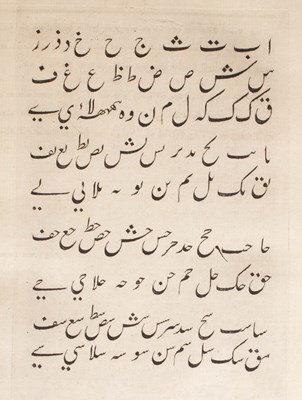 ا ب ت ث ج ح خ د ذ ر ز
س ش ص ض ط ظ ع غ ف
ق ک ك که ل م ن و ه ھ لا ی ے
با بب بح بد بر بس بش بص بط بع بف
بق بک بل بم بن بو به بلا بی بے
حا حب حح حد حر حس حش حص حط حع حف
حق حک حل حم حن حو حه حلا حی حے
سا سب سح سد سر سس سش سص سط سع سف
سق سک سل سم سن سو سه سلا سی سے